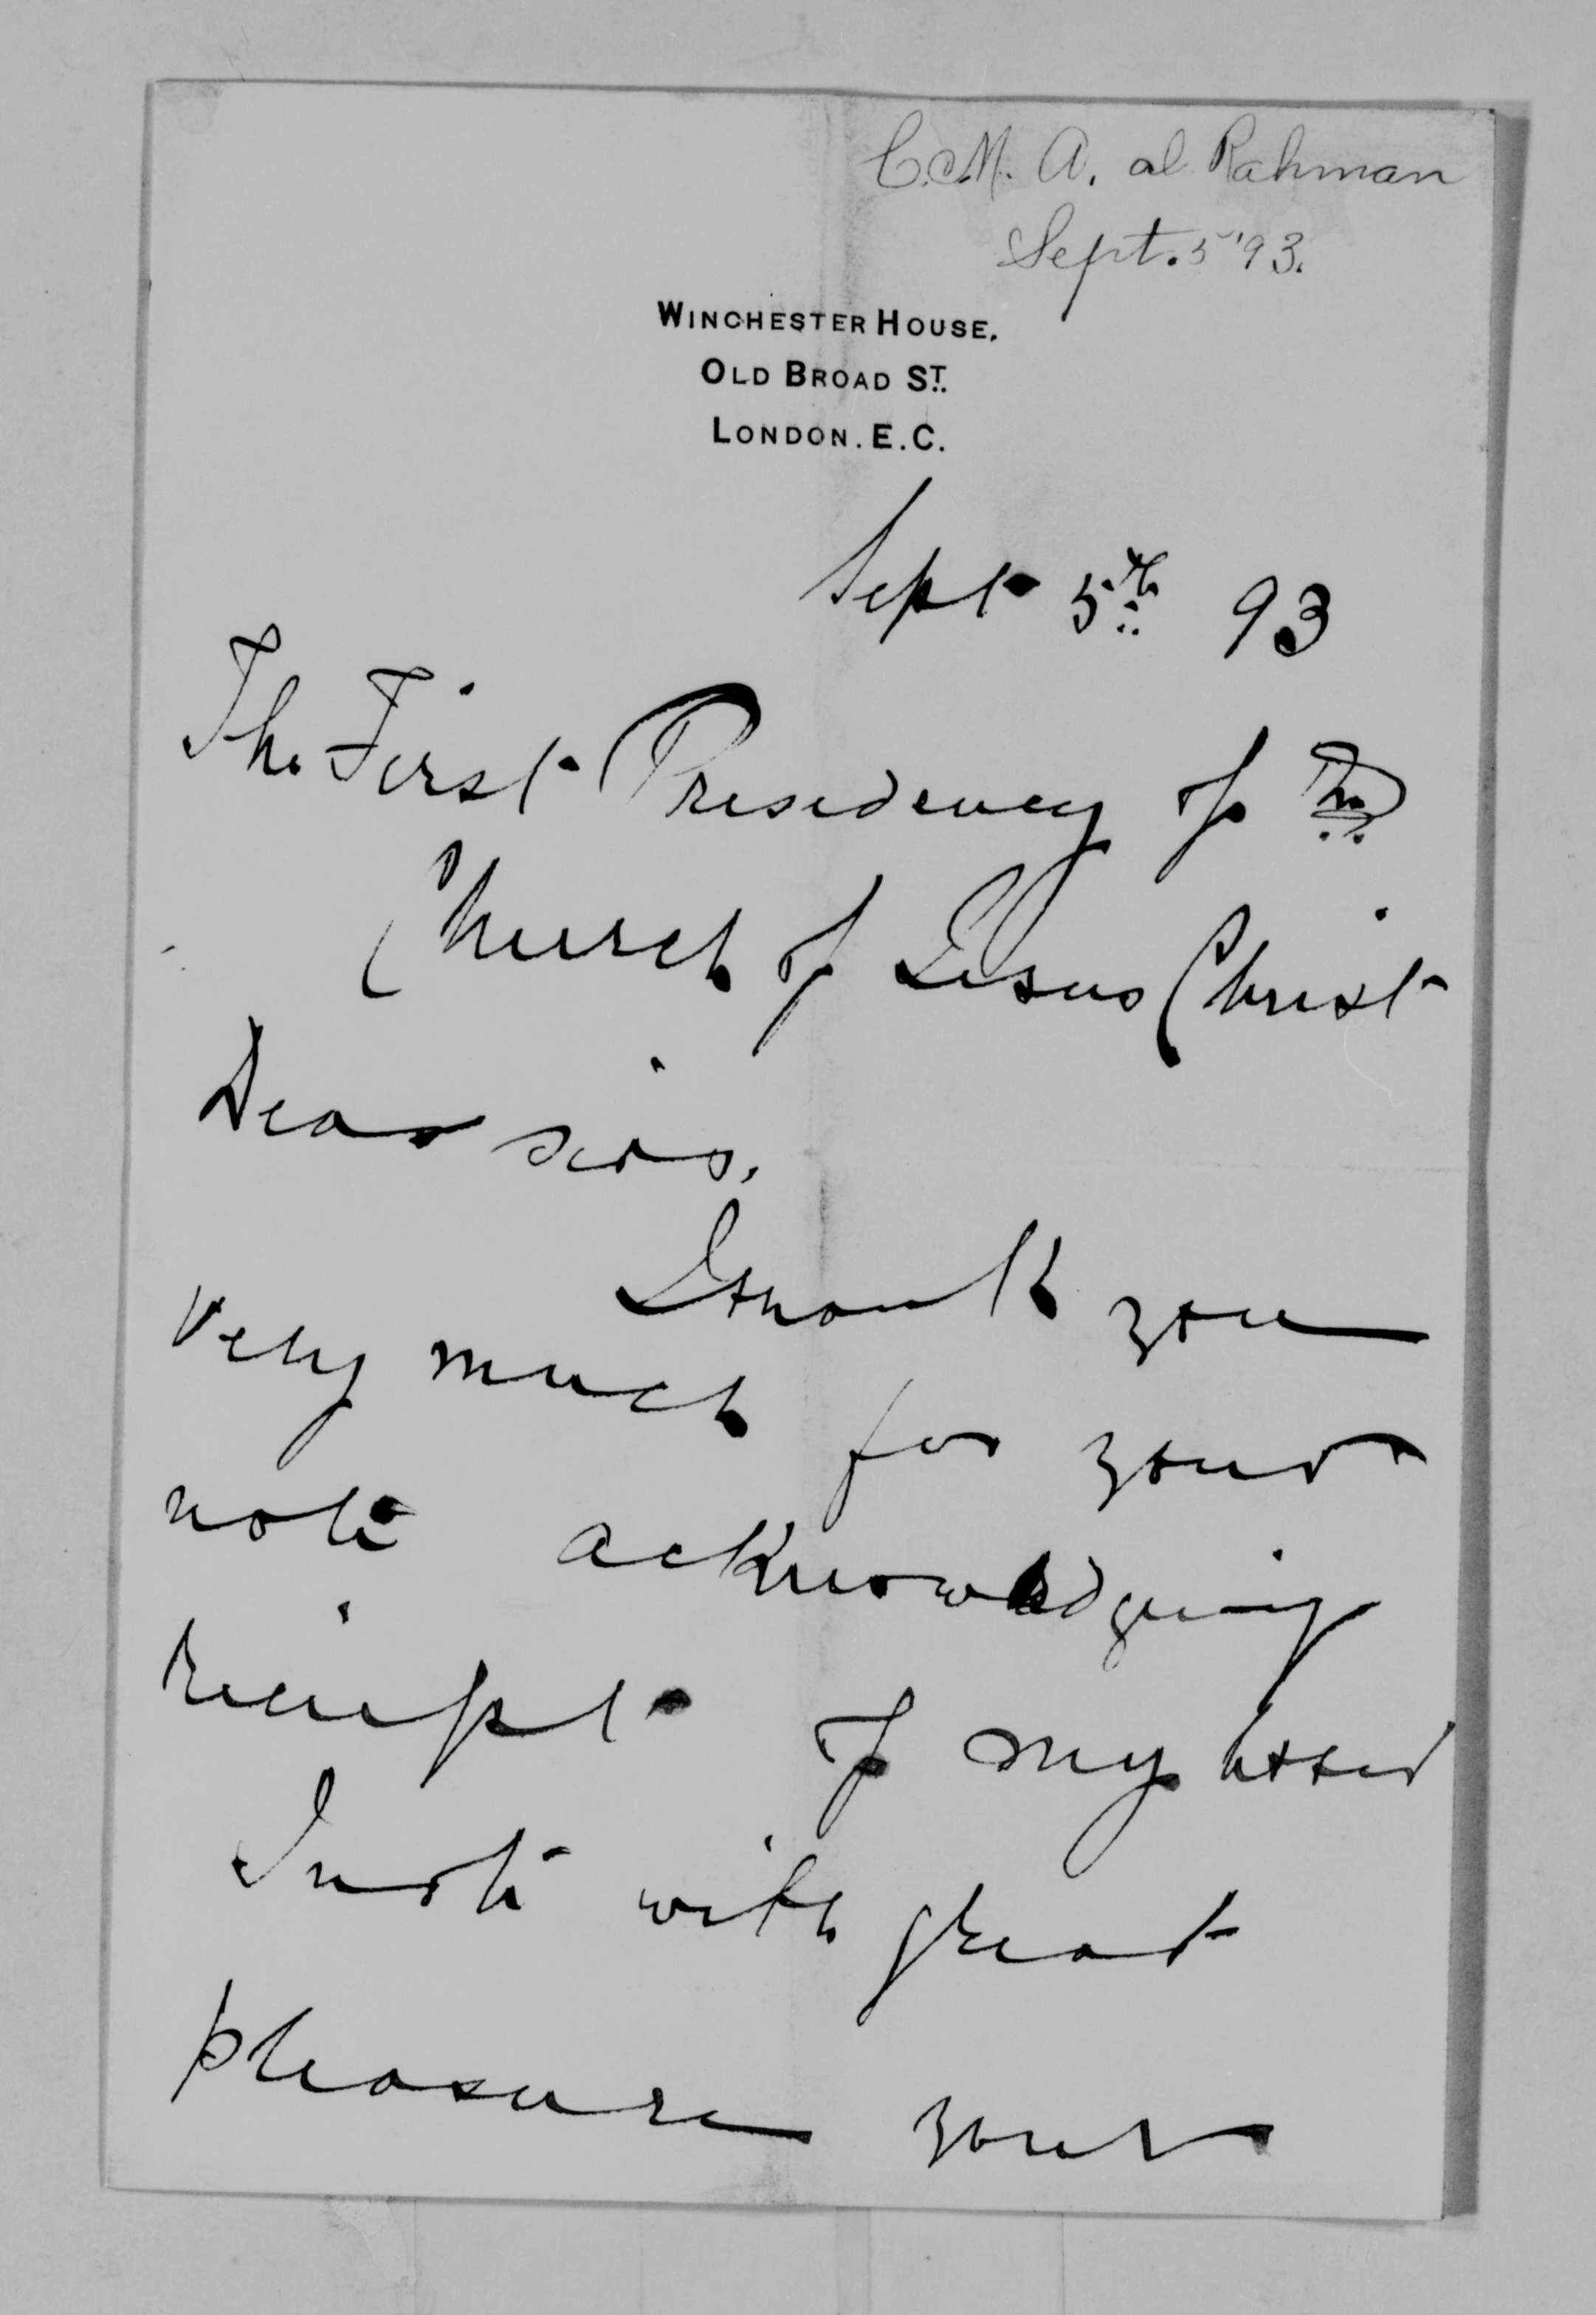 C. M. A. al Rahman
Sept. 5 '93.
WINCHESTER HOUSE.
OLD BROAD ST.
LONDON. E.C.
Sept 5th 93
The First Presidency of The
Church of Jesus Christ
Dear sirs,
I thank you
very much for your
note acknowledging
reciept of my letter
I note with great
pleasure your